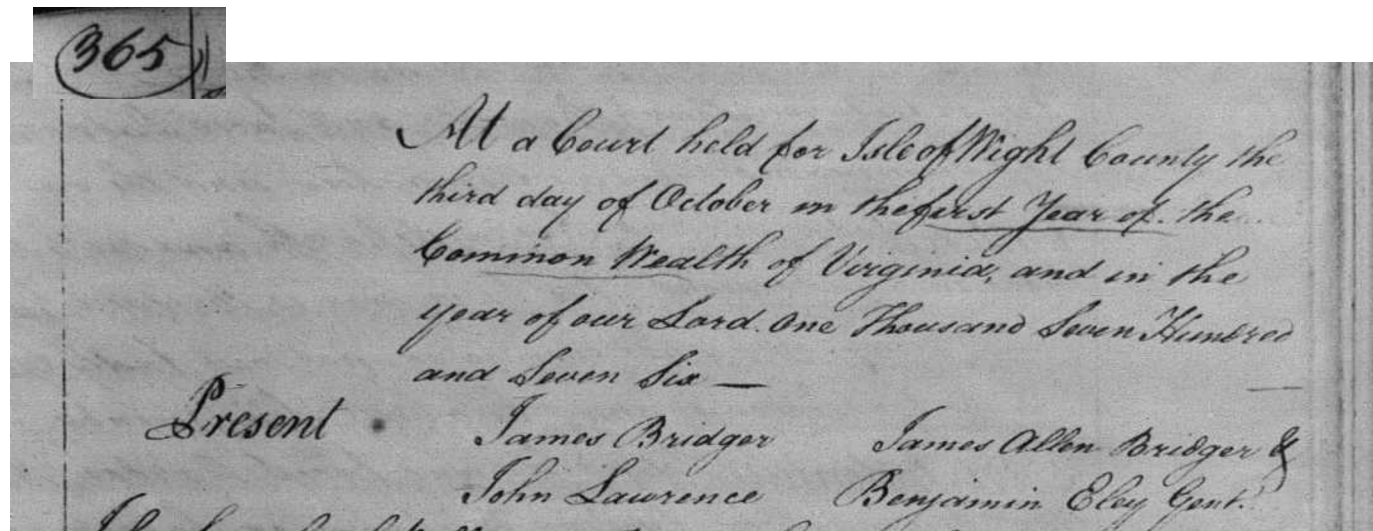 365
At a Court held for Isle of Wight County the
third day of October in the first Year of the
Common Wealth of Virginia, and in the
year of our Lord One Thousand Seven Hundred
and Seven Six —
Present James Bridger James Allen Bridger &
John Lawrence Benjamin Eley Gent.